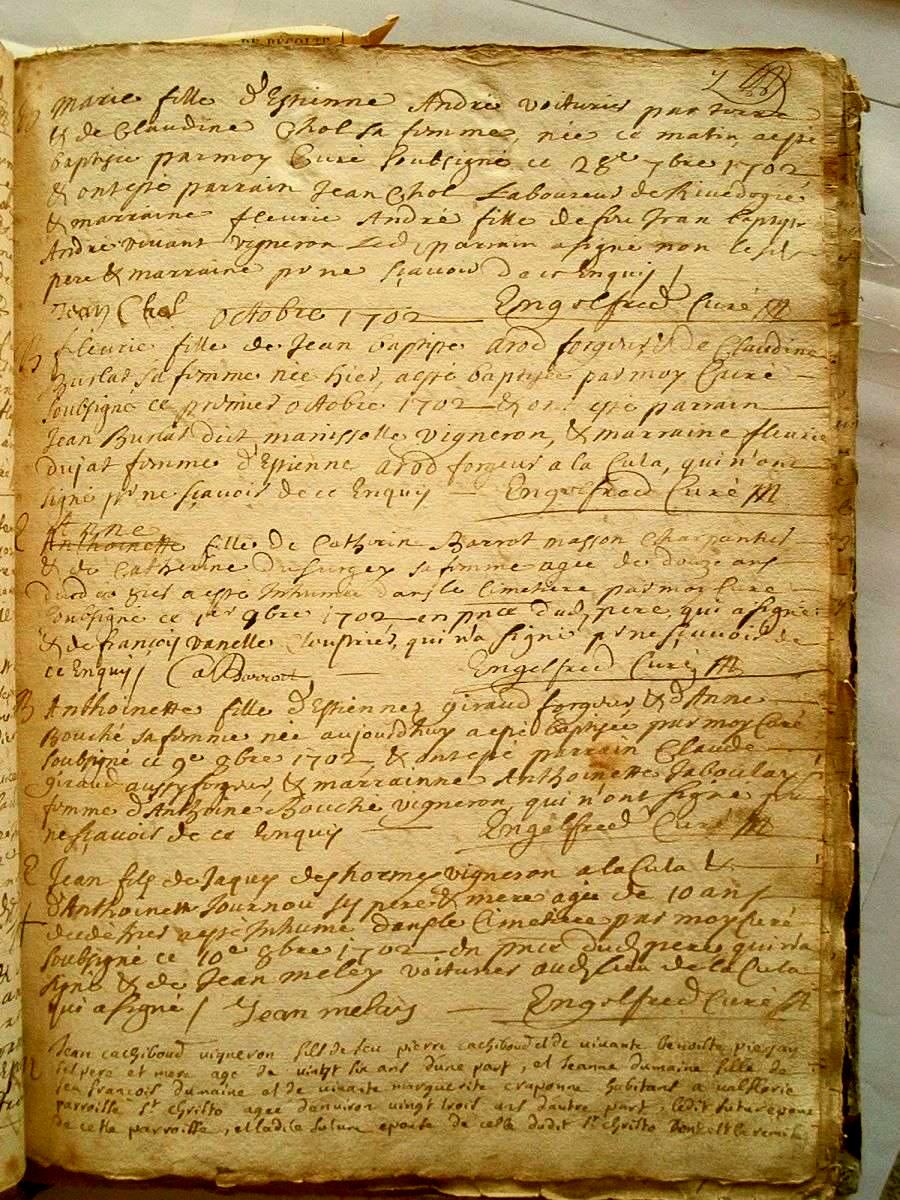 Marie fille d'Estienne André voiturier par terre
& de Claudine Chol sa femme, née ce matin, a esté
baptisée par moy Curé soubsigné ce 28e 7bre 1702
& ont esté parrain Jean Chol Laboureur de
& marraine fleurie André fille de feu Jean baptiste
André vivant vigneron Led parrain a signé non le
pere & marraine pr ne sçavoir de ce Enquis
Jean Chol Engelfred Curé
octobre 1702
B fleurie fille de Jean baptiste arod forgeur & de Claudine
Burlat sa femme née hier, a esté baptisée par moy Curé
soubsigné ce premier octobre 1702 & ont esté parrain
Jean Burlat dict manissolle vigneron, & marraine fleurie
dujat femme d'Estienne arod forgeur a la Cula, qui n'ont
signé pr ne sçavoir de ce Enquis Engelfred Curé
Anthoinette fille de Catherin Barrot masson Charpentier
& de Catherine sa femme agée de douze ans
a esté Inhumée dans le Cimetiere par moy Curé
soubsigné ce 1er 8bre 1702 en pnce dud pere, qui a signé
& de françois vanelle qui n'a signé pr ne sçavoir de
ce Enquis Barrot Engelfred Curé
B Anthoinette fille d'Estienne giraud forgeur & d'Anne
Bouché sa femme née aujourdhuy a esté baptisée par moy Curé
soubsigné ce 9e 8bre 1702, & ont esté parrain Claude
giraud aussy forgeur, & marrainne Anthoinette Jaboulay
femme d'Anthoine Bouché vigneron, qui n'ont signé pr
ne sçavoir de ce Enquis Engelfred Curé
Jean fils de Jaques deshormes vigneron a la Cula &
d'Anthoinette Journou ses pere & mere agé de 10 ans
decedé hier a esté Inhumé dans le Cimetiere par moy Curé
soubsigné ce 10e 8bre 1702 en pnce dud pere qui n'a
signé & de Jean meley voiturier aud lieu de la Cula
qui a signé Jean Engelfred Curé
Jean cachiboud vigneron fils de feu pierre cachiboud et de vivante benoiste
ses pere et mere agé de vingt six ans d'une part, et Jeanne dumaine fille de
feu françois dumaine et de vivante marguerite craponne habitans a valflorie
parroisse St Christo agée d'anviron vingt trois ans d'autre part, ledit futur epoux
de cette parroisse, et ladite future epouse de celle dudit St Christo